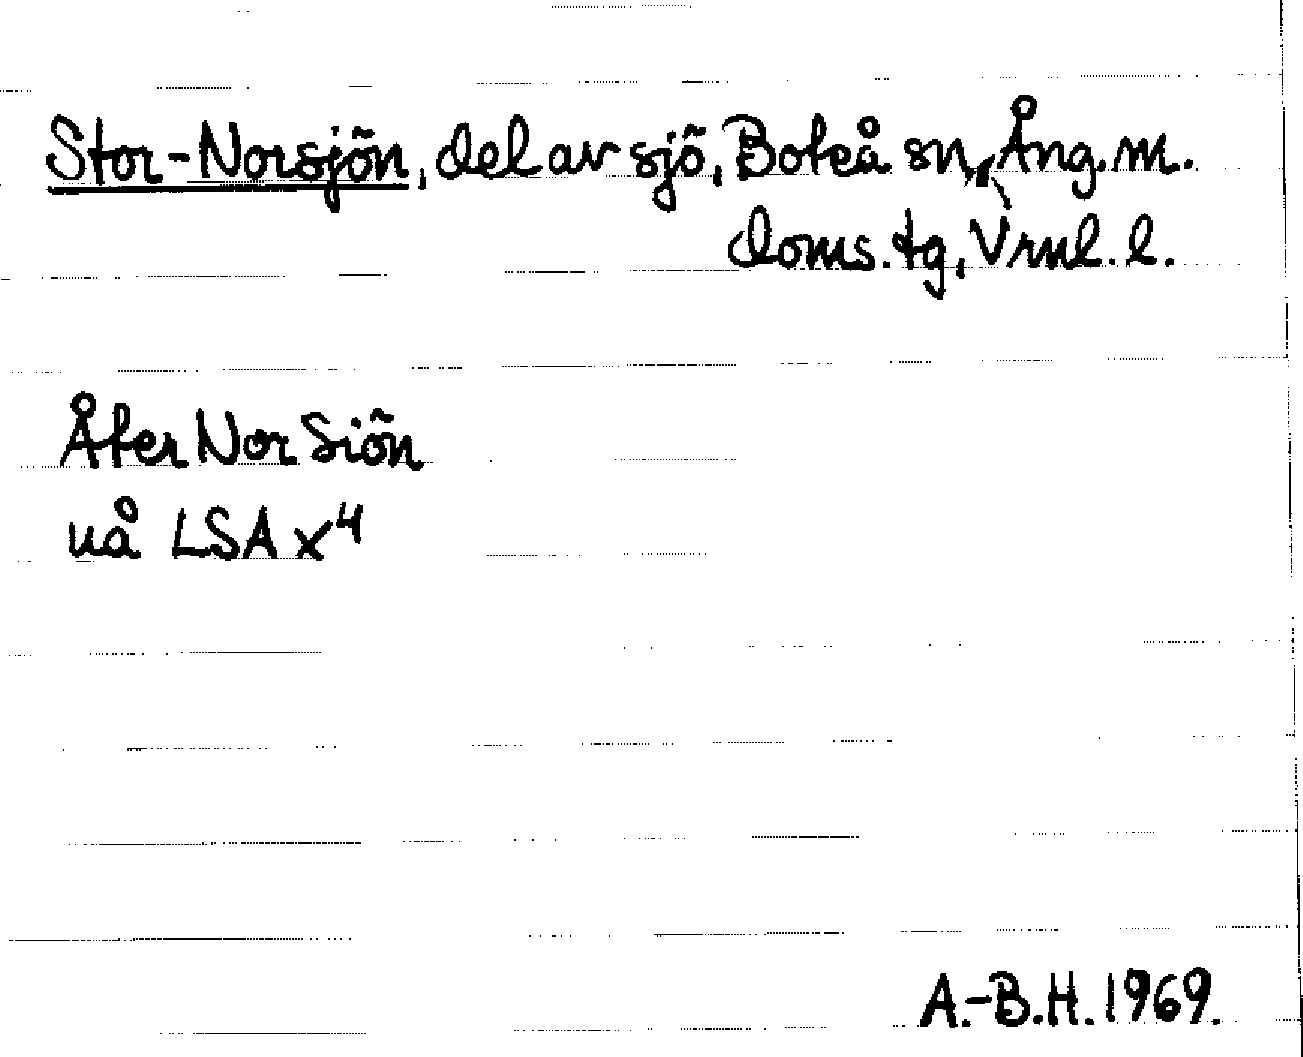 Stor-Norsjön, del av sjö, Boteå sn, Ång.m.
doms.tg, Vrnl.l.
Åter Nor Siön
uå LSA X4
A.-B.H. 1969.